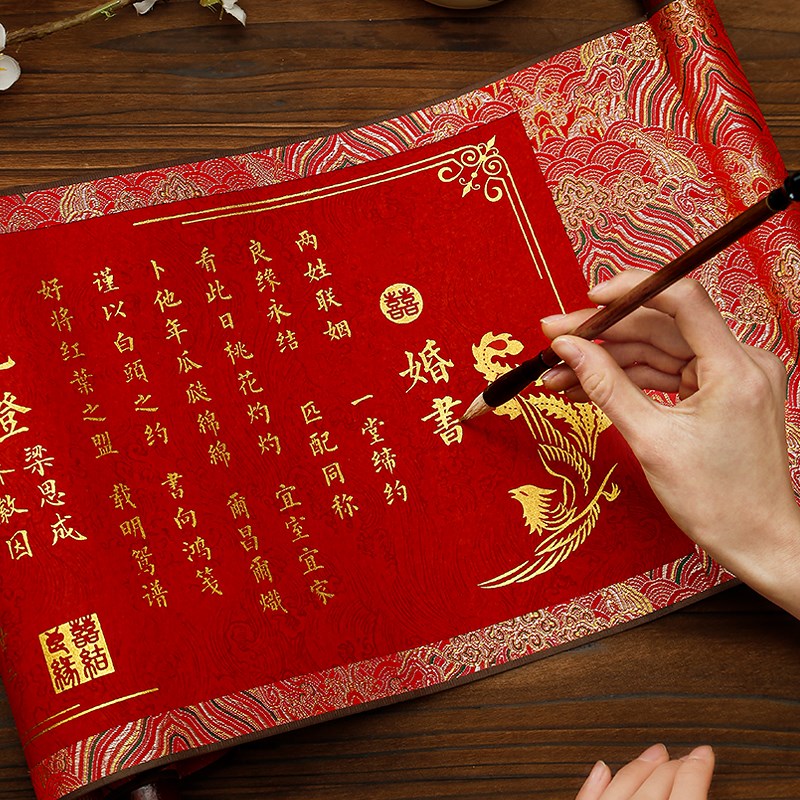 囍
婚書
两姓联姻 一堂缔约
良缘永结 匹配同称
看此日桃花灼灼 宜室宜家
卜他年瓜瓞绵绵 爾昌爾熾
謹以白頭之约 書向鸿笺
好将红葉之盟 载明鸳谱
梁思成
徽因
囍結良缘